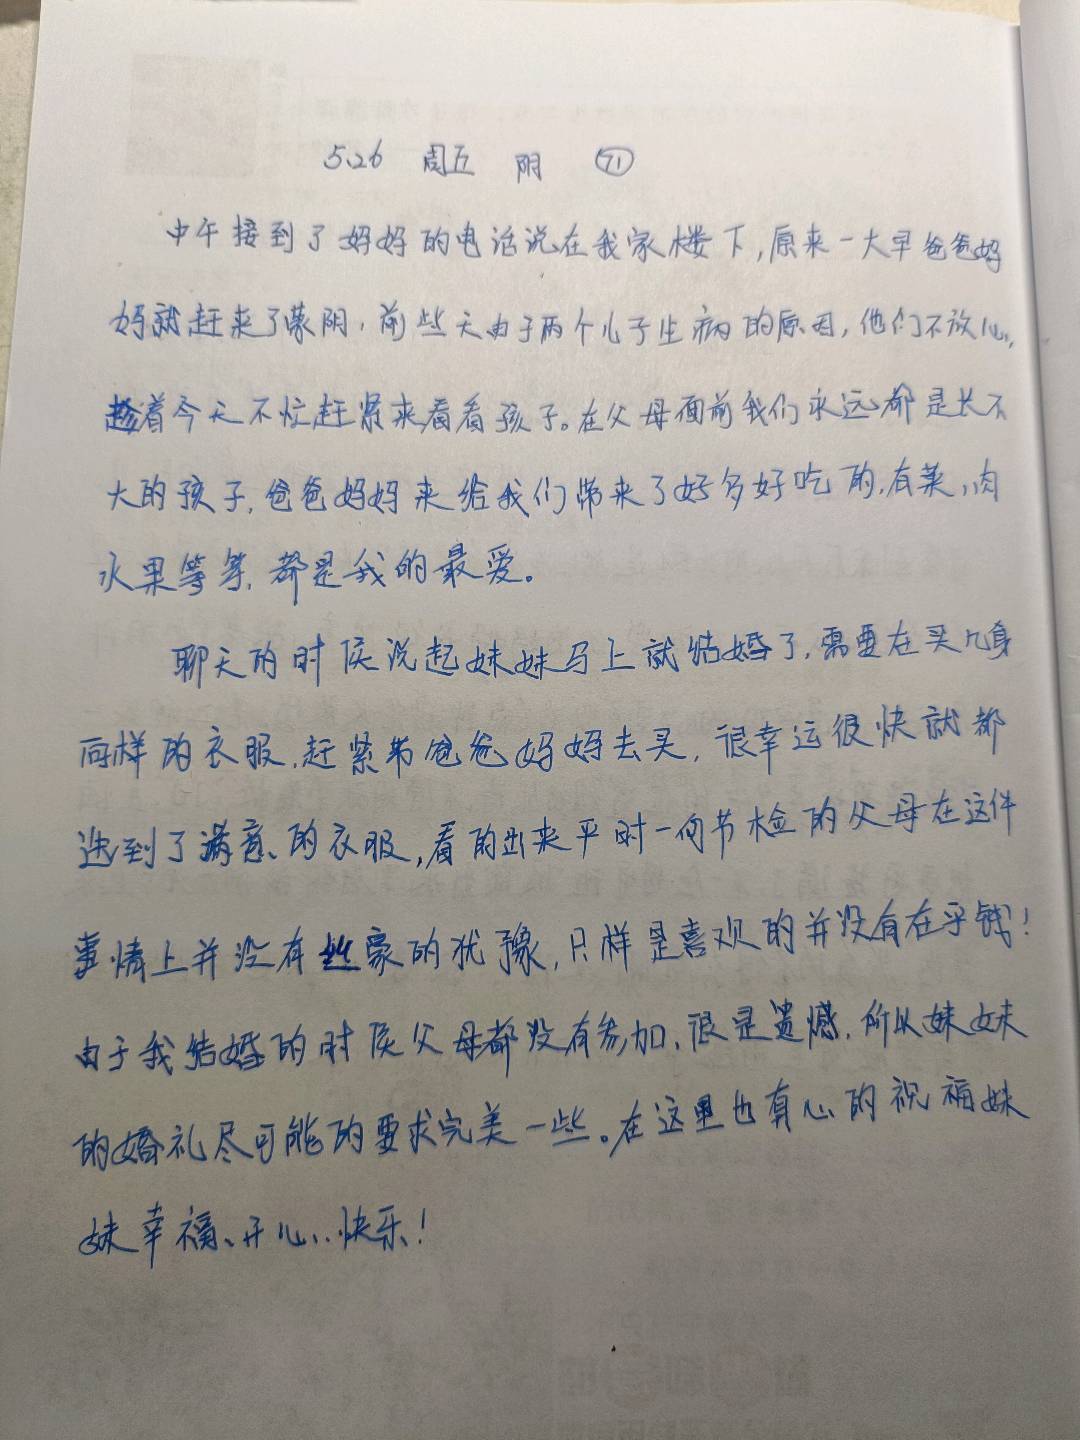 5.26 周五 阴 71
中午接到了妈妈的电话说在我家楼下,原来一大早爸爸妈
妈就赶来了蒙阴,前些天由于两个儿子生病的原因,他们不放心,
趁着今天不忙赶紧来看看孩子。在父母面前我们永远都是长不
大的孩子,爸爸妈妈来给我们带来了好多好吃的,有菜,肉
水果等等,都是我的最爱。
聊天的时候说起妹妹马上就结婚了,需要在买几身
同样的衣服,赶紧带爸爸妈妈去买,很幸运很快就都
选到了满意的衣服,看的出来平时一向节检的父母在这件
事情上并没有丝豪的犹豫,只样是喜欢的并没有在乎钱!
由于我结婚的时候父母都没有参加,很是遗憾,所以妹妹
的婚礼尽可能的要求完美一些。在这里也有心的祝福妹
妹幸福、开心、快乐!